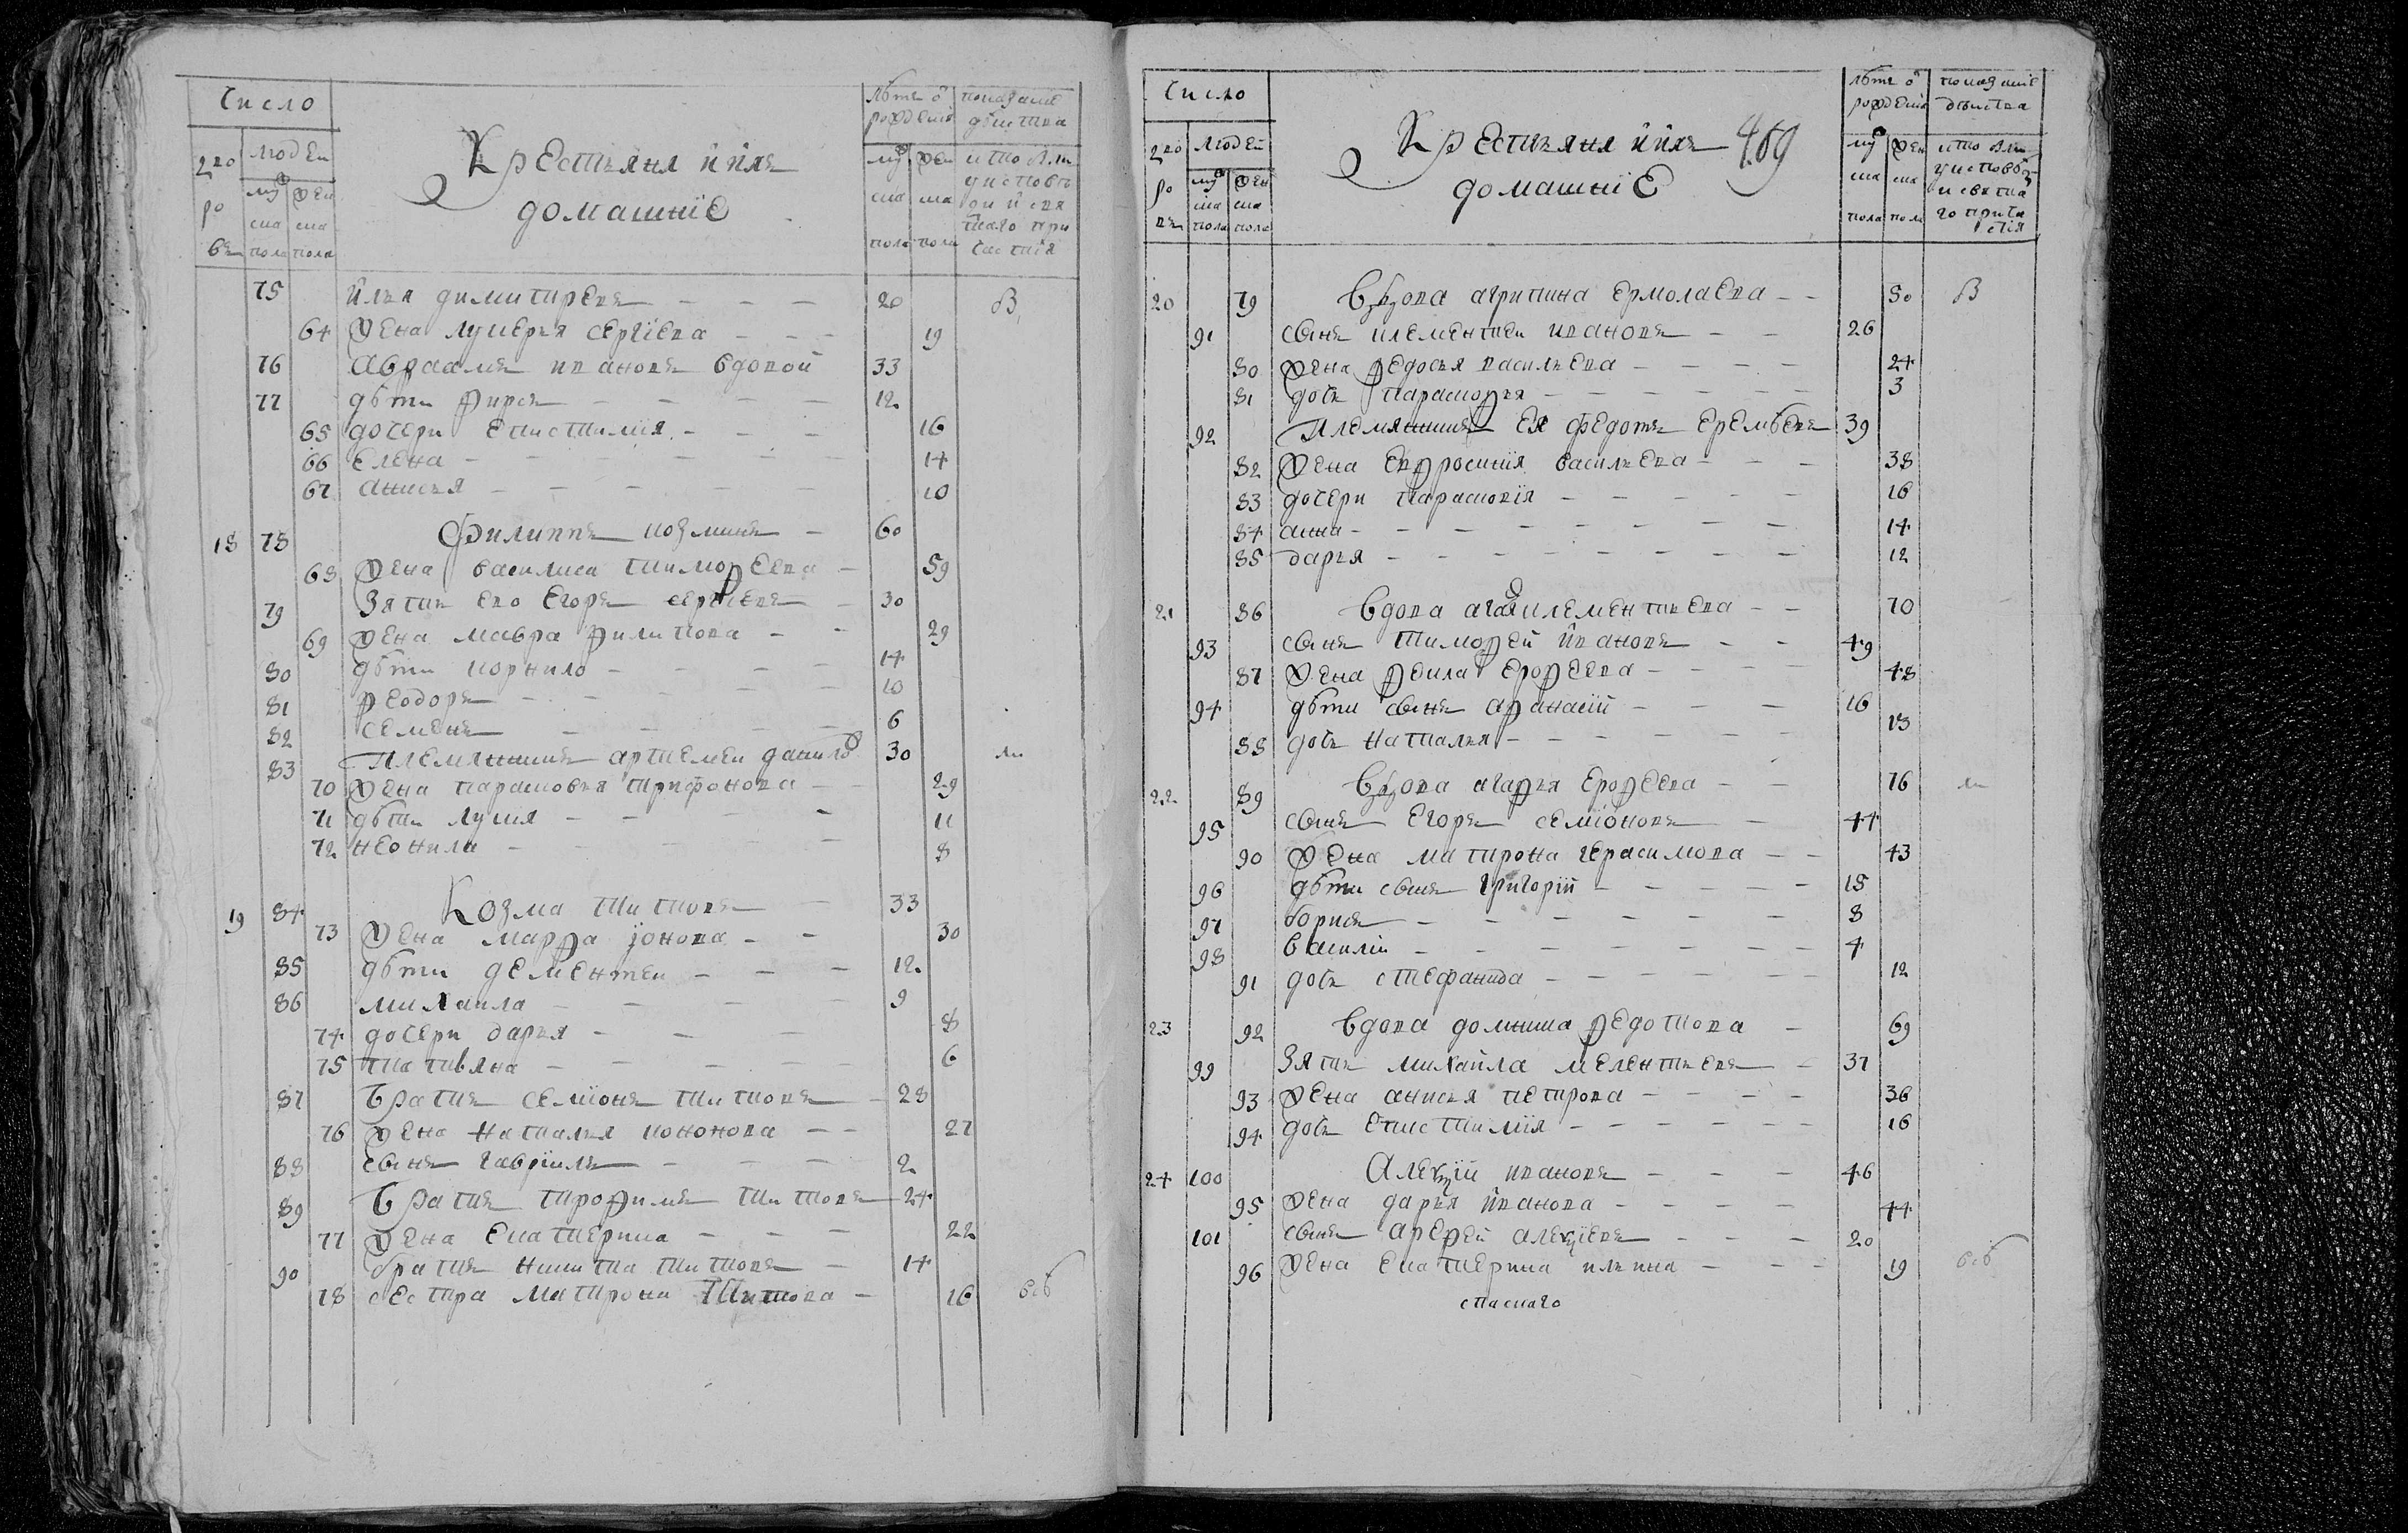 Число
дво
ро
въ
людей
муж
ска
пола
жен
ска
пола
Крестьяня и ихъ
домашніе
лѣтъ о
рожденія
муж
ска
пола
жен
ска
пола
показаніе
действа
кто былъ
у исповѣ
ди и свя
таго при
частия
75 илья димитревъ - - - 20 В
64 жена лукерья сергиева - - - 19
76 Авраамъ ивановъ вдовой 33
77 дѣти фирсъ - - - - 12
65 дочери епистимия - - - 16
66 елена - - - - - 14
67 анисья - - - - - 10
18 78 Филиппъ козминъ - 60
68 жена василиса тимофеева - 59
79 Зять его егоръ сергиевъ - 30
69 жена мавра филипова - - 29
80 дѣти корнило - - - - 14
81 феодоръ - - - - 10
82 семенъ - - - - 6
83 племянникъ артемеи данило 30
70 жена парасковья трифонова - - 29
71 дѣти лукия - - - - 11
72 неонила - - - - 8
19 84 Козма титовъ - 33
73 жена марфа іонова - - 30
85 дѣти дементеи - - - 12
86 михаила - - - - 9
74 дочери дарья - - - 8
75 татьяна - - - - - 6
87 братъ семионъ титовъ - 28
76 жена наталья кононова - - 27
88 сынъ гавриилъ - - - 2
89 братъ трофимъ титовъ 24
77 жена екатерина - - - 22
90 братъ никита титовъ - 14
78 сестра матрона титова - 16
Число
дво
ро
въ
людей
муж
ска
пола
жен
ска
пола
Крестьяня и ихъ 469
домашніе
лѣтъ о
рожденія
муж
ска
пола
жен
ска
пола
показаніе
действа
кто былъ
у исповѣд
и свята
го прича
стія
20 79 Вдова агрипина ермолаева - - 50 В
91 сынъ клементеи ивановъ - - 26
80 жена федосья васильева - - - - 24
81 дочь парасковья - - - - - 3
92 племянникъ ея федотъ еремѣевъ 39
82 жена евфросинія васильева - - - 38
83 дочери парасковія - - - - - 16
84 анна - - - - - - - - 14
85 дарья - - - - - - - - 12
21 86 Вдова агафия клементьева - - 70
93 сынъ тимофей ивановъ - - 49
87 жена фекла ерофеева - - - - 48
94 дѣти сынъ афанасій - - - 16
88 дочь наталья - - - - - - 13
22 89 Вдова агафья ерофеева - - 76
95 сынъ егоръ семіоновъ - 44
90 жена матрона герасимова - - 43
96 дѣти сынъ григорій - - - - - 15
97 борисъ - - - - - - 8
98 василій - - - - - - 4
91 дочь стефанида - - - - - - 12
23 92 Вдова домника федотова - 69
99 Зять михаила мелентьевъ - 37
93 жена анисья петрова - - - - 36
94 дочь епистимия - - - - - - 16
24 100 Алекзій ивановъ - - - 46
95 жена дарья иванова - - - - 44
101 сынъ арефей алекзіевъ - - - 20
96 жена екатерина ильина - - - 19
спаскаго